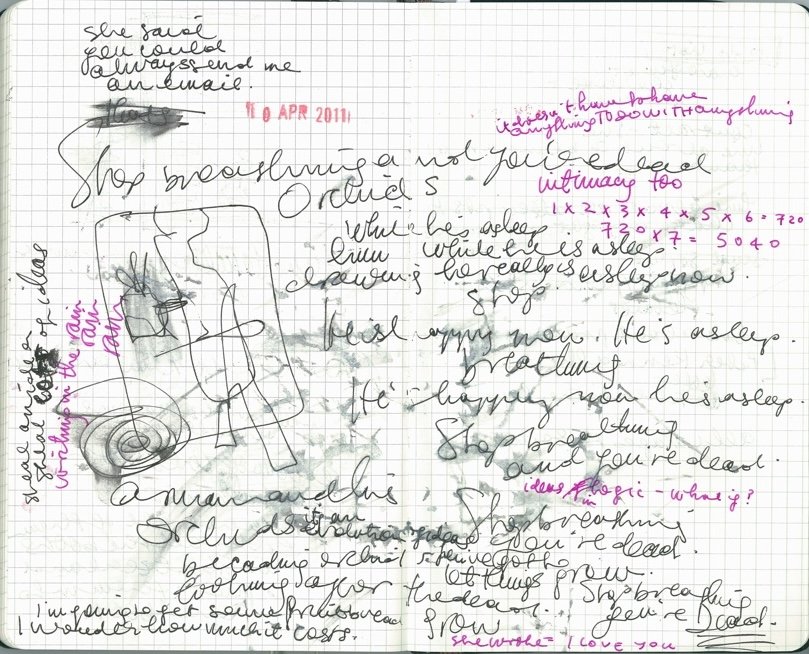 she said
you could
always send me
an email.
10 APR 2011
it doesn't have to have
anything TO DO WITH anything
Stop breathing and you're dead
Orchids
intimacy too
1 x 2 x 3 x 4 x 5 x 6 = 720
720 x 7 = 5040
While he's asleep
him while he is asleep
drawing he really is asleep now.
Stop
He is happy now. He's asleep.
breathing
He's happy now he's asleep.
Stop breathing
and you're dead.
steal an idea
steal of ideas
writing in the rain
rain
rain
ideas in logic - what is?
a man and his
Orchids
it's an
evolution of ideas
Stop breathing
you're dead.
let things grow.
looking after the dead.
grow
Stop breathing
you're Dead.
I'm going to get some fruitbread
I wonder how much it costs.
she wrote = I love you